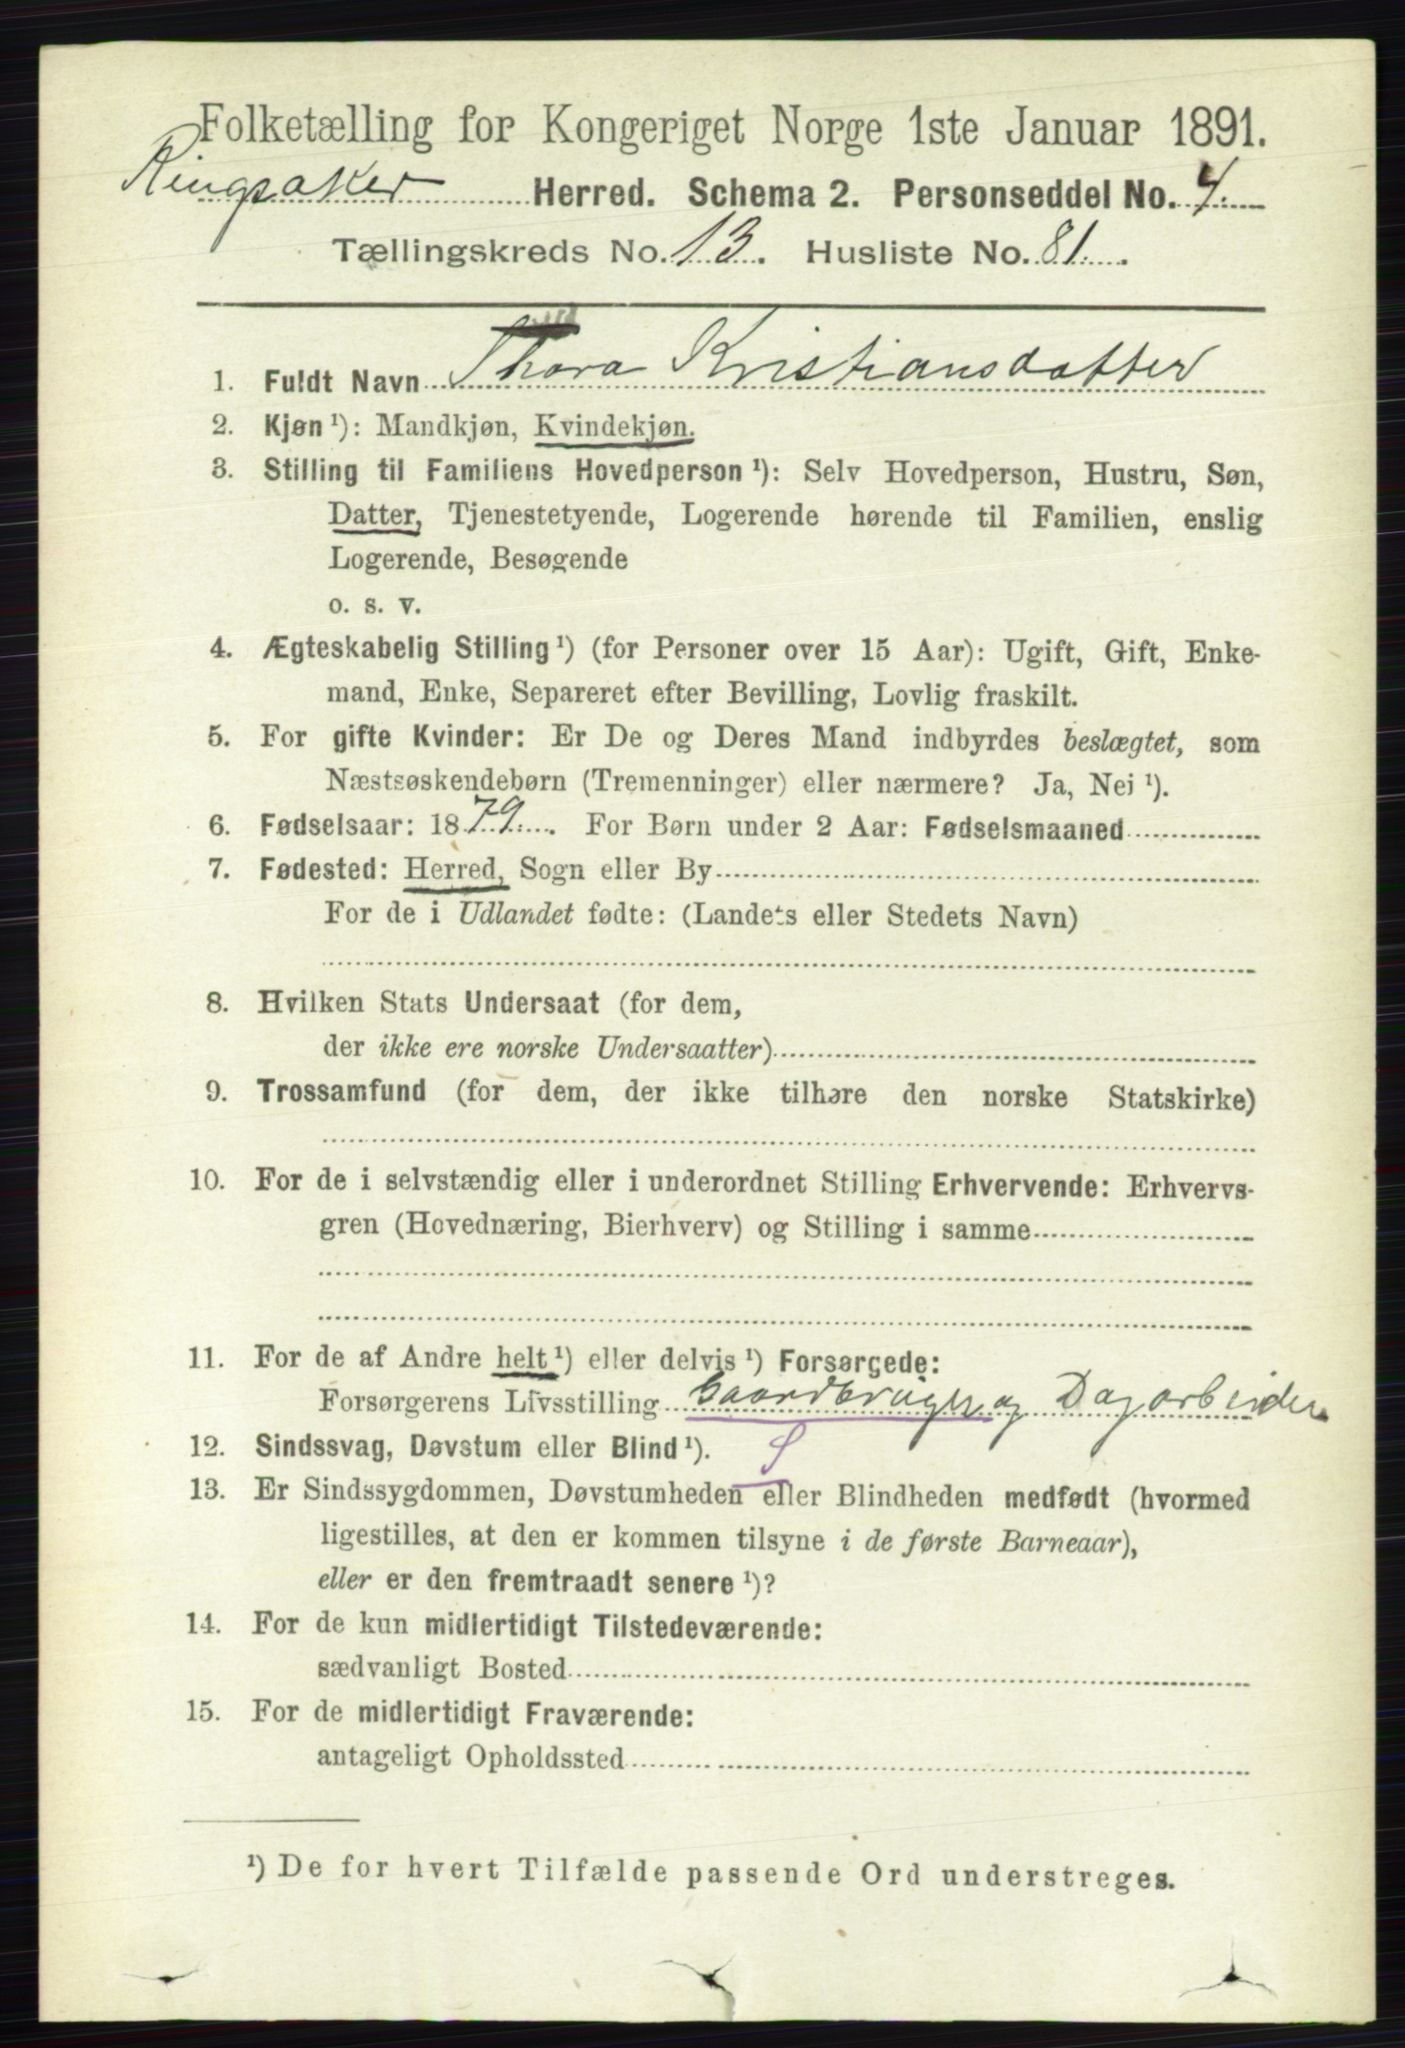 Folketælling for Kongeriget Norge 1ste Januar 1891.
Ringsaker Herred. Schema 2. Personseddel No. 4.
Tællingskreds No. 13. Husliste No. 81.
1. Fuldt Navn Thora Kristiansdatter
2. Kjøn ¹): Mandkjøn, Kvindekjøn.
3. Stilling til Familiens Hovedperson ¹): Selv Hovedperson, Hustru, Søn,
Datter, Tjenestetyende, Logerende hørende til Familien, enslig
Logerende, Besøgende
o. s. v.
4. Ægteskabelig Stilling ¹) (for Personer over 15 Aar): Ugift, Gift, Enke-
mand, Enke, Separeret efter Bevilling, Lovlig fraskilt.
5. For gifte Kvinder: Er De og Deres Mand indbyrdes beslægtet, som
Næstsøskendebørn (Tremenninger) eller nærmere? Ja, Nei ¹).
6. Fødselsaar: 1879. For Børn under 2 Aar: Fødselsmaaned
7. Fødested: Herred, Sogn eller By
For de i Udlandet fødte: (Landets eller Stedets Navn)
8. Hvilken Stats Undersaat (for dem,
der ikke ere norske Undersaatter)
9. Trossamfund (for dem, der ikke tilhøre den norske Statskirke)
10. For de i selvstændig eller i underordnet Stilling Erhvervende: Erhvervs-
gren (Hovednæring, Bierhverv) og Stilling i samme
11. For de af Andre helt ¹) eller delvis ¹) Forsørgede:
Forsørgerens Livsstilling Gaardbruger og Dagarbeider
12. Sindssvag, Døvstum eller Blind ¹). S
13. Er Sindssygdommen, Døvstumheden eller Blindheden medfødt (hvormed
ligestilles, at den er kommen tilsyne i de første Barneaar),
eller er den fremtraadt senere ¹)?
14. For de kun midlertidigt Tilstedeværende:
sædvanligt Bosted
15. For de midlertidigt Fraværende:
antageligt Opholdssted
¹) De for hvert Tilfælde passende Ord understreges.